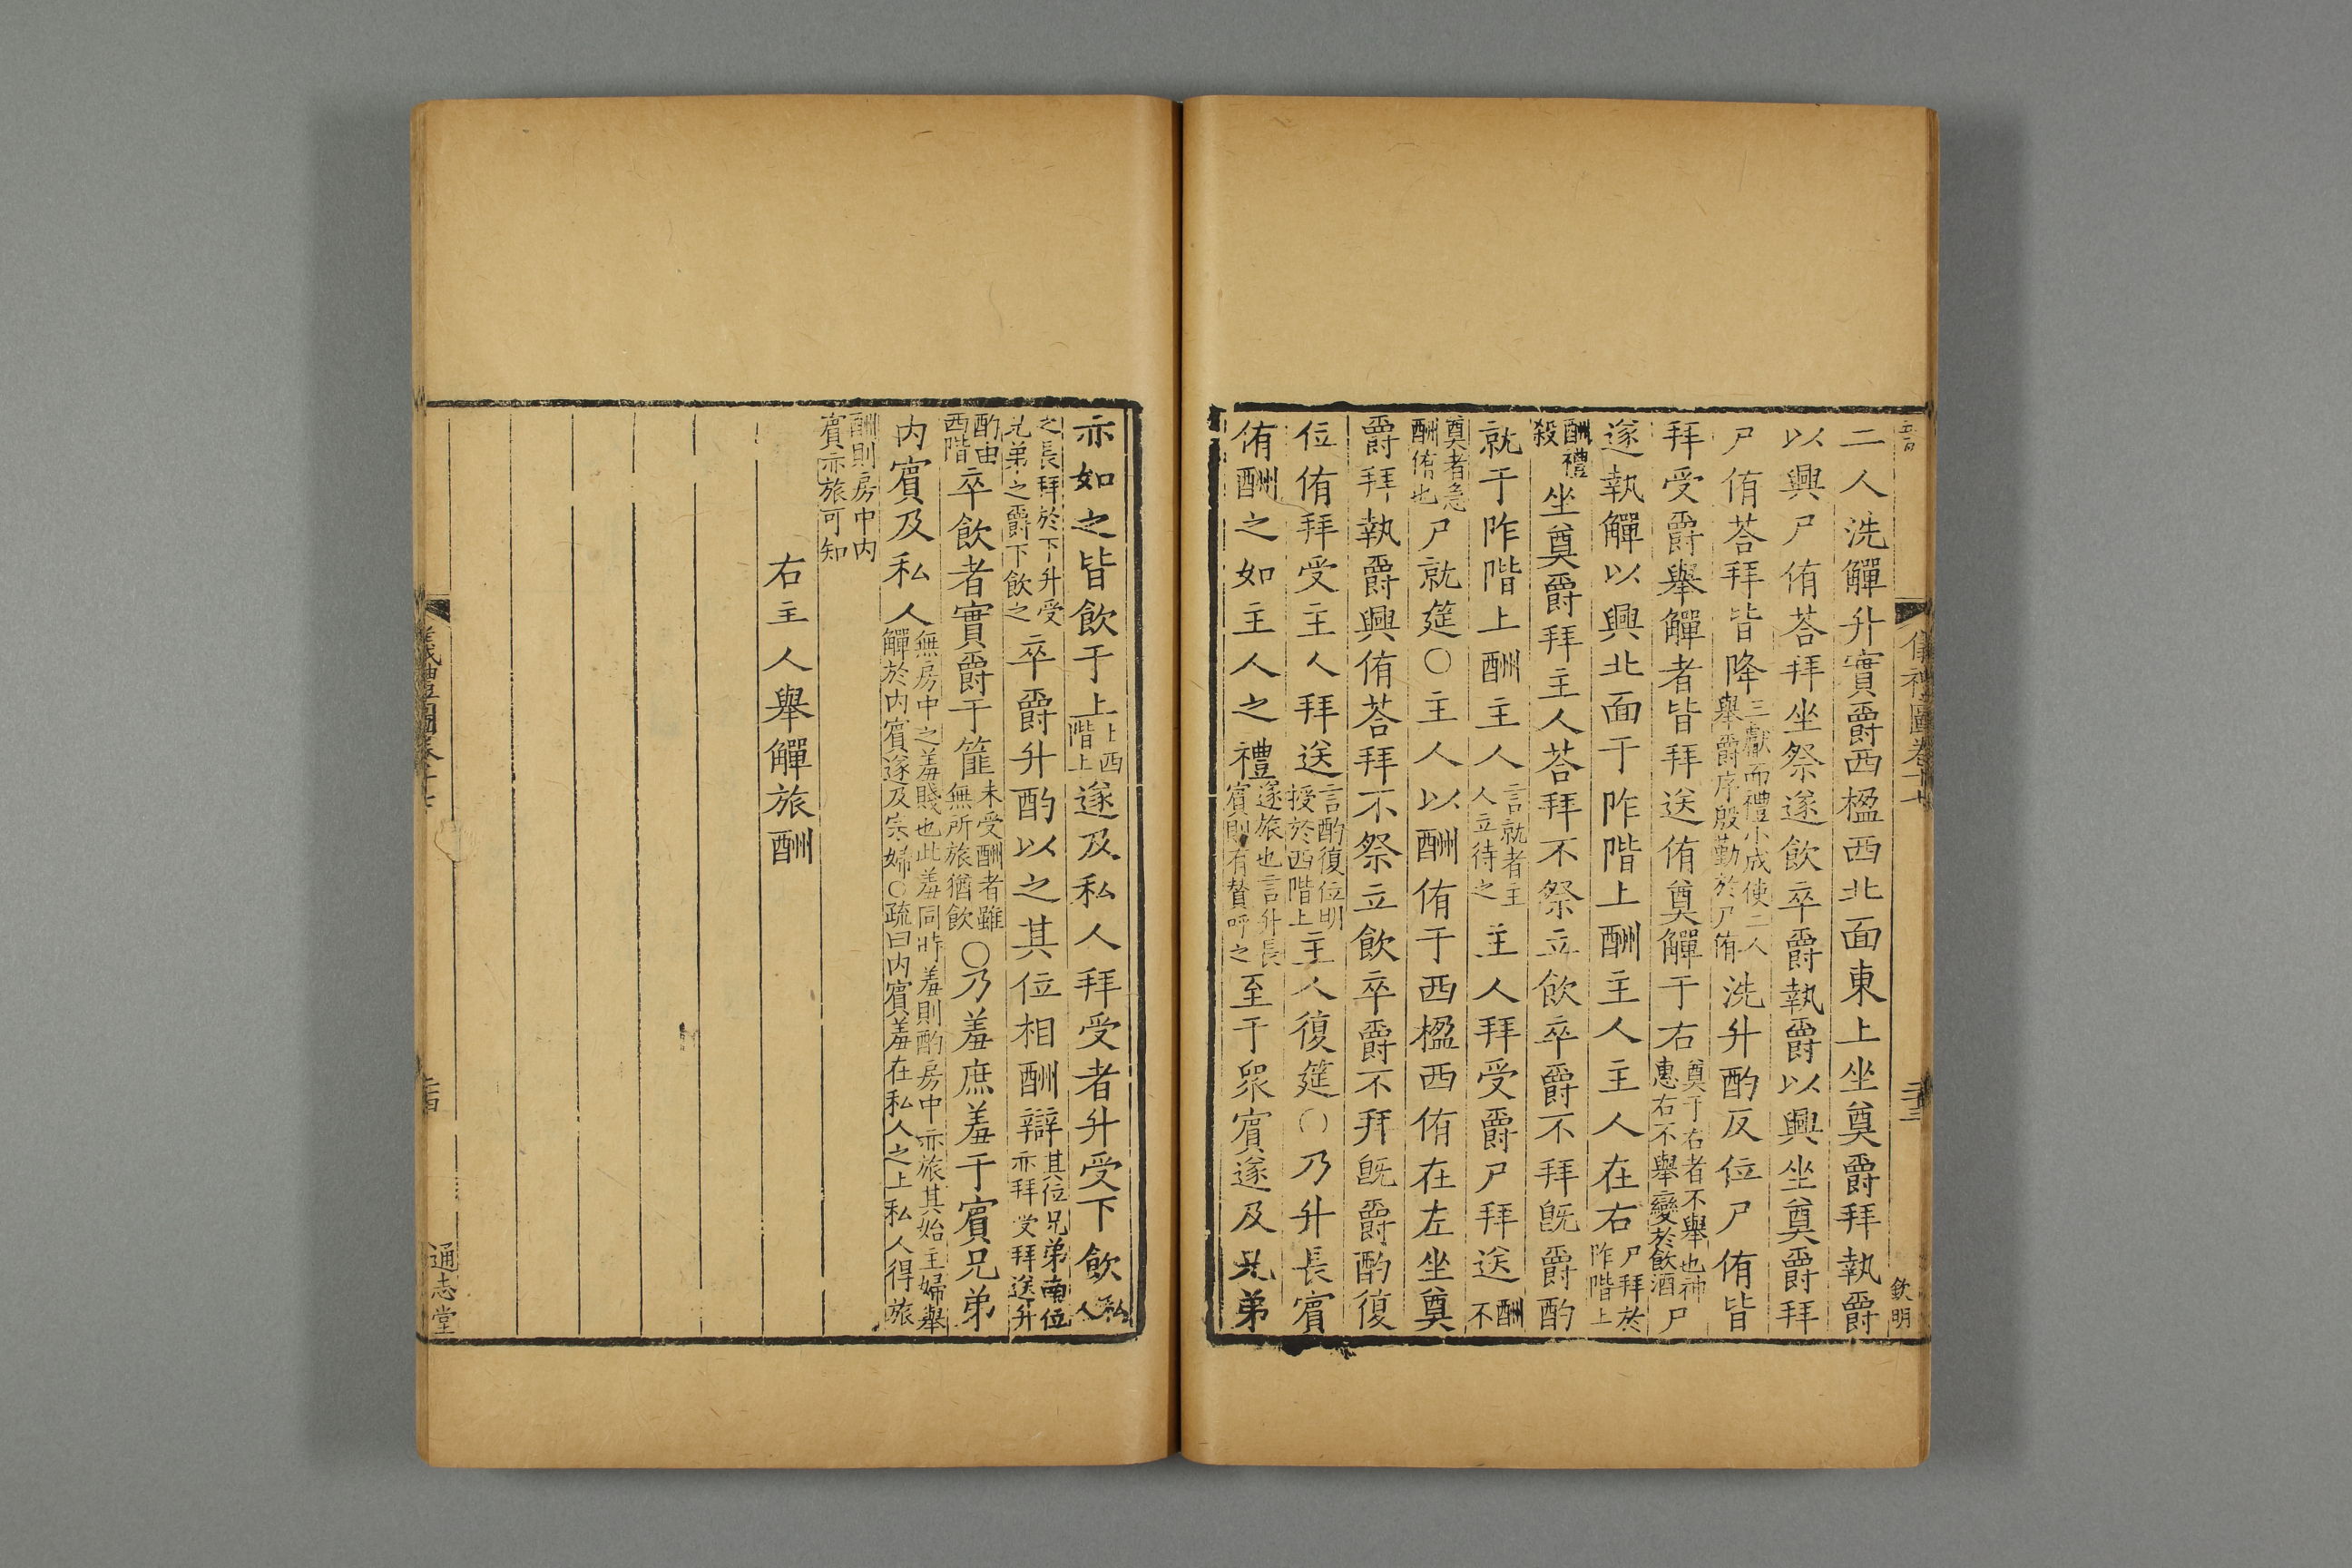 儀禮圖卷十七
二十三
欽明
二人洗觶升實爵西楹西北面東上坐奠爵拜執爵
以興尸侑荅拜坐祭遂飲卒爵執爵以興坐奠爵拜
尸侑荅拜皆降三獻而禮小成使二人舉爵序殷勤於尸侑洗升酌反位尸侑皆
拜受爵舉觶者皆拜送侑奠觶于右奠于右者不舉也神惠右不舉變於飲酒尸
遂執觶以興北面于阼階上酬主人主人在右尸拜於阼階上
酬禮殺坐奠爵拜主人荅拜不祭立飲卒爵不拜旣爵酌
就于阼階上酬主人言就者主人立待之主人拜受爵尸拜送酬不
奠者急酬侑也尸就筵○主人以酬侑于西楹西侑在左坐奠
爵拜執爵興侑荅拜不祭立飲卒爵不拜旣爵酌復
位侑拜受主人拜送言酌復位明授於西階上主人復筵○乃升長賓
侑酬之如主人之禮遂旅也言升長賓則有贊呼之至于衆賓遂及兄弟
亦如之皆飲于上上西階上遂及私人拜受者升受下飲私人
之長拜於下升受兄弟之爵下飲之卒爵升酌以之其位相酬辯其位兄弟南位亦拜受拜送升
酌由西階卒飲者實爵于篚未受酬者雖無所旅猶飲○乃羞庶羞于賓兄弟
內賓及私人無房中之羞賤也此羞同時羞則酌房中亦旅其始主婦舉觶於內賓遂及宗婦○疏曰內賓羞在私人之上私人得旅
酬則房中內賓亦旅可知
右主人舉觶旅酬
儀禮圖卷十七
二十四
通志堂